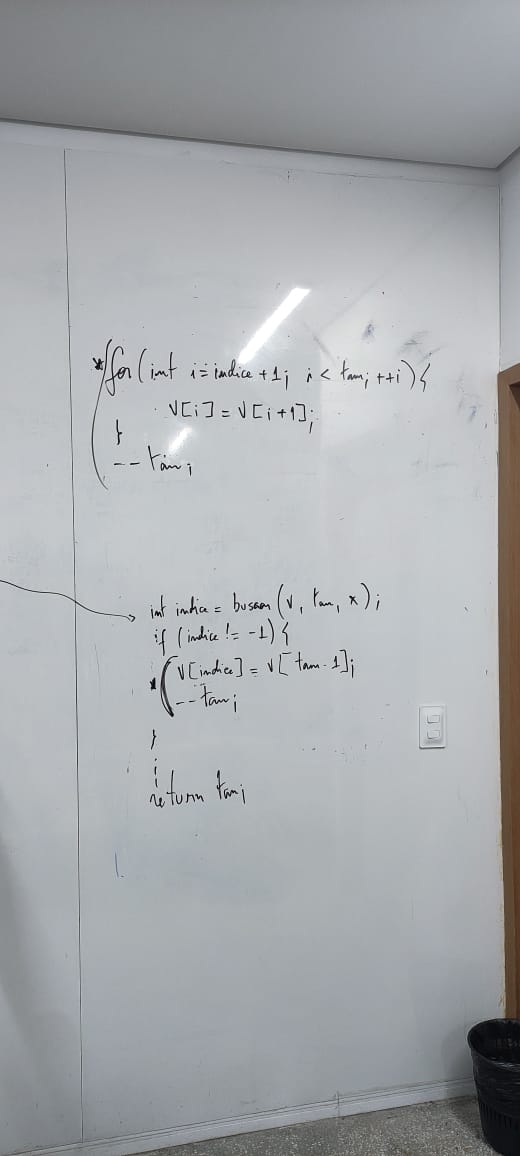 *for(int i=indice+1; i < tam; ++i){
V[i]=V[i+1];
}
--tam;
int indice = buscar(V, tam, x);
if (indice != -1){
*(V[indice] = V[tam-1];
--tam;
}
return tam;